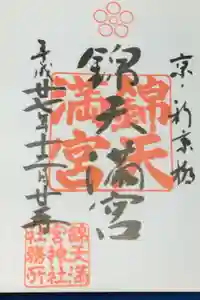 京・新京極
錦天満宮
平成廿七年十二月廿五日
錦天
満宮
錦天満
宮神社
社務所